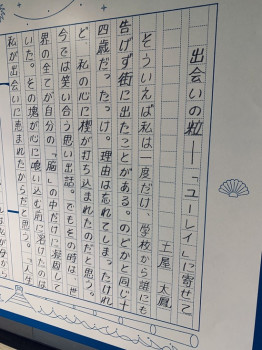 出会いの粒――「ユーレイ」に寄せて
土屋 太鳳
そういえば私は一度だけ、学校から誰にも
告げず街に出たことがある。のどかと同じ十
四歳だったっけ。理由は忘れてしまったけれ
ど、私の心に楔が打ち込まれたのだと思う。
今では笑い合う思い出話。でもその時は、世
界の全てが自分の「脳」の中だけに凝固して
いた。その塊が心に喰い込む前に溶けたのは
私が出会いに恵まれたからだと思う。